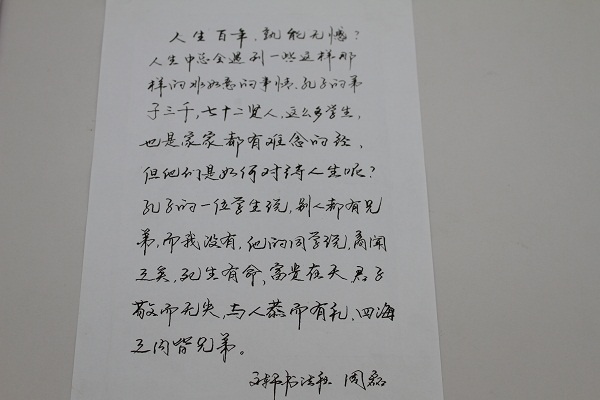 人生百年，孰能无憾？
人生中总会遇到一些这样那
样的不如意的事情，孔子的弟
子三千，七十二贤人，这么多学生，
也是家家都有难念的经，
但他们是如何对待人生呢？
孔子的一位学生说，别人都有兄
弟，而我没有，他的同学说，商闻
之矣，死生有命，富贵在天，君子
敬而无失，与人恭而有礼，四海
之内皆兄弟。
书法 周磊